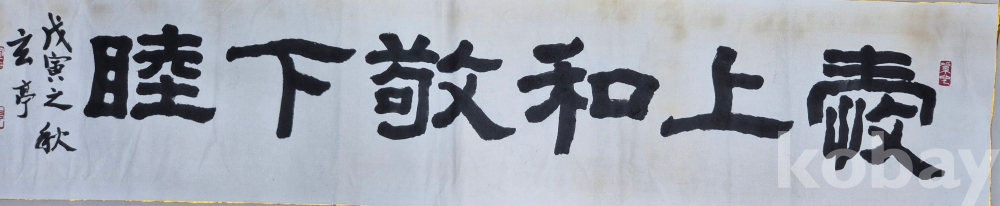 愛上和敬下睦
戊寅之秋
玄亭
kobay